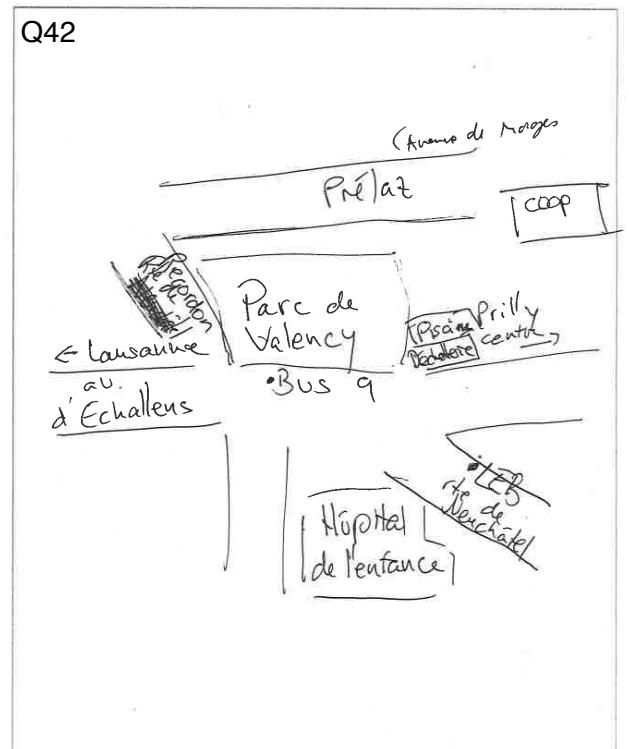 Q42
(Avenue de Morges
Prélaz
coop
Parc de
Valency
Piscine
Déchetterie
Prilly
centre
← Lausanne
av.
d'Echallens
•Bus 9
LEB
rte de
Neuchâtel
Hôpital
de l'enfance